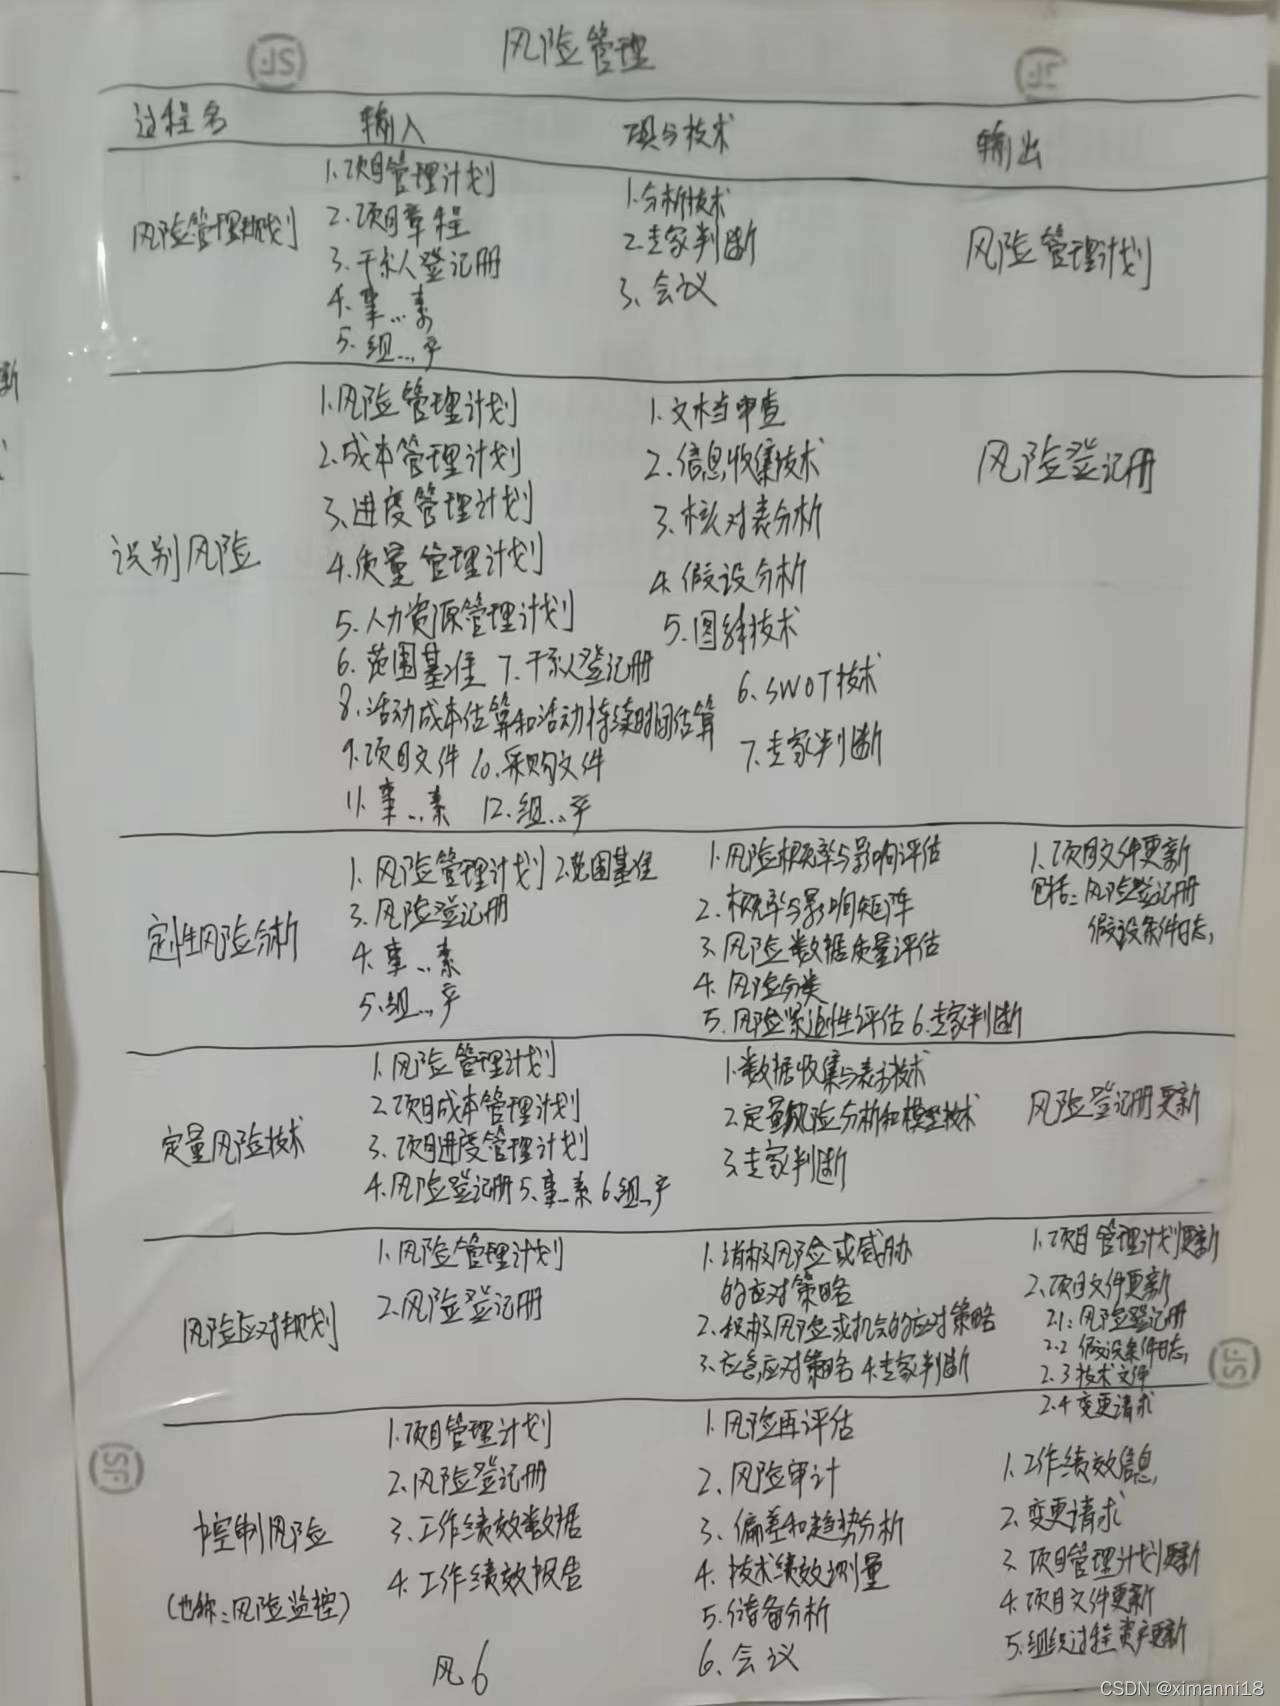 风险管理
过程名 输入 工具与技术 输出
风险管理规划
1.项目管理计划
2.项目章程
3.干系人登记册
4.事...素
5.组...产
1.分析技术
2.专家判断
3.会议
风险管理计划
识别风险
1.风险管理计划
2.成本管理计划
3.进度管理计划
4.质量管理计划
5.人力资源管理计划
6.范围基准 7.干系人登记册
8.活动成本估算和活动持续时间估算
9.项目文件 10.采购文件
11.事...素 12.组...产
1.文档审查
2.信息收集技术
3.核对表分析
4.假设分析
5.图解技术
6.SWOT技术
7.专家判断
风险登记册
定性风险分析
1.风险管理计划 2.范围基准
3.风险登记册
4.事...素
5.组...产
1.风险概率与影响评估
2.概率与影响矩阵
3.风险数据质量评估
4.风险分类
5.风险紧迫性评估 6.专家判断
1.项目文件更新
包括:风险登记册
假设条件日志,
定量风险技术
1.风险管理计划
2.项目成本管理计划
3.项目进度管理计划
4.风险登记册 5.事...素 6.组...产
1.数据收集与表示技术
2.定量风险分析和模型技术
3.专家判断
风险登记册更新
风险应对规划
1.风险管理计划
2.风险登记册
1.消极风险或威胁
的应对策略
2.积极风险或机会的应对策略
3.应急应对策略 4.专家判断
1.项目管理计划更新
2.项目文件更新
2.1:风险登记册
2.2 假设条件日志,
2.3 技术文件
2.4 变更请求
控制风险
(也称:风险监控)
1.项目管理计划
2.风险登记册
3.工作绩效数据
4.工作绩效报告
1.风险再评估
2.风险审计
3.偏差和趋势分析
4.技术绩效测量
5.储备分析
6.会议
1.工作绩效信息
2.变更请求
3.项目管理计划更新
4.项目文件更新
5.组织过程资产更新
风6
CSDN @ximanni18